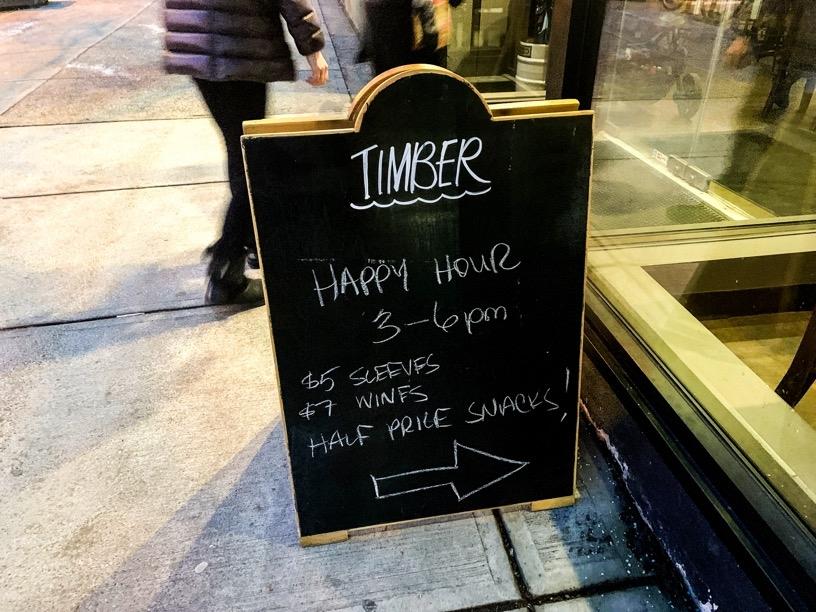 TIMBER
HAPPY HOUR
3-6pm
$5 SLEEVES
$7 WINES
HALF PRICE SNACKS!